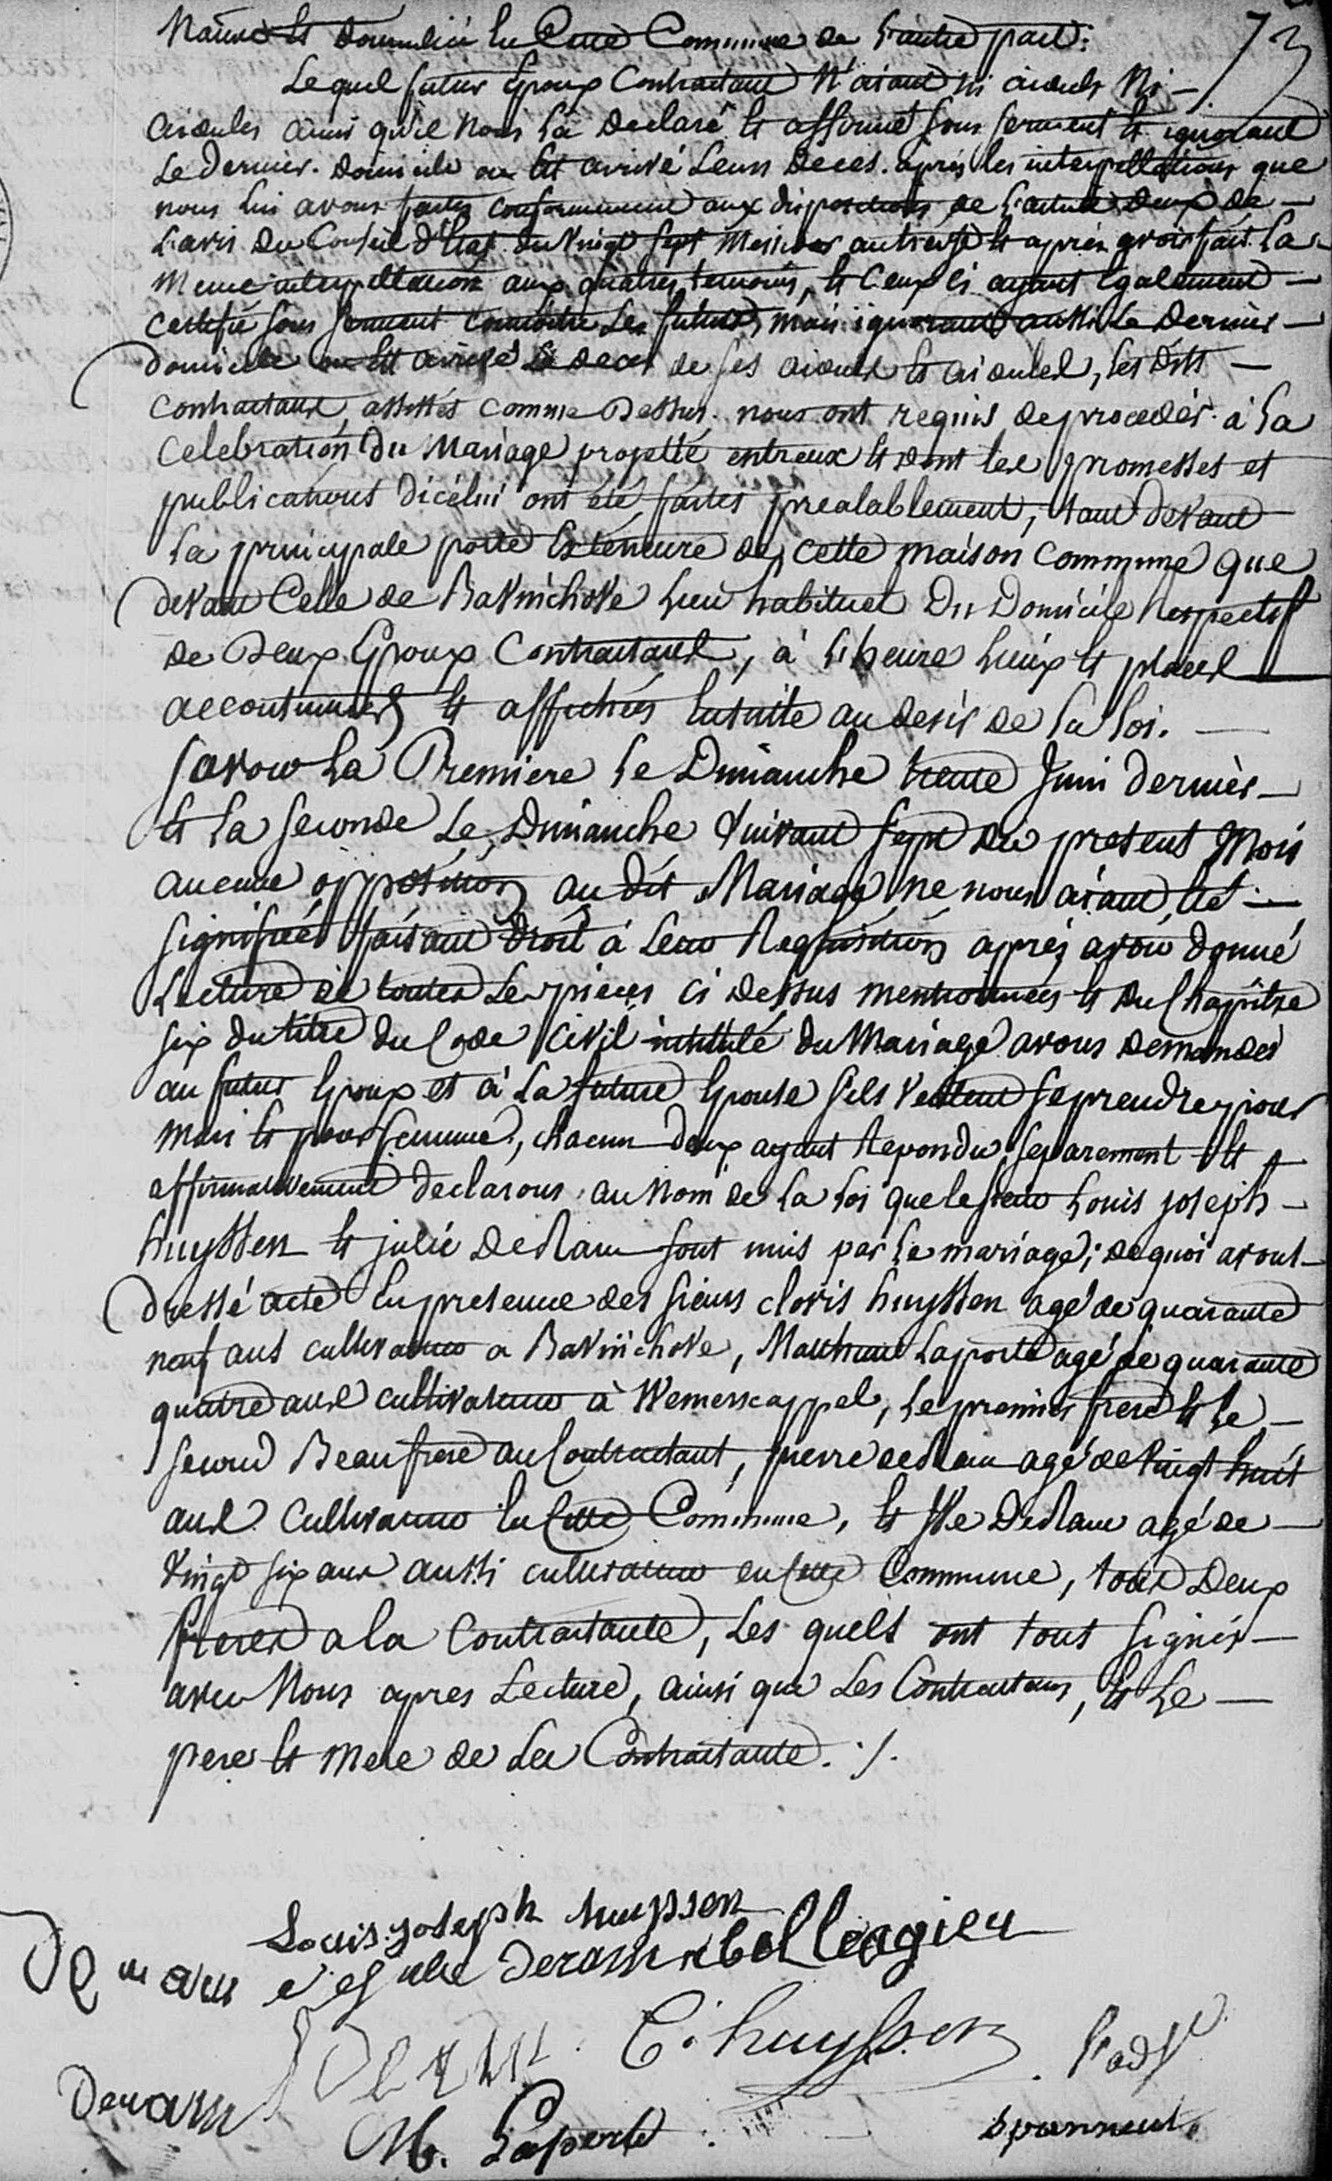 73
Native et domiciliée en cette Commune de l'autre part.
Lequel futur Epoux Contractant N'aiant ni aieuls Ni
aieules ainsi qu'il Nous l'a Declaré et affirmé sous serment et ignorant
le dernier domicile ou est arrivé Leurs Deces. après les interpellations que
nous lui avons faites conformement aux dispositions de l'article deux de
l'avis du Conseil d'Etat du Vingt sept Messidor an treize et après avoir fait la
meme interpellation aux quatre temoins, et Ceux ci ayant Egalement
Certifié sous serment connoitre les futurs, mais ignorant aussi le Dernier
domicile ou est arrivé le deces de ses aieuls et aieules, les Dits
contractans assistés comme Dessus. nous ont requis de proceder à la
Celebration du Mariage projetté entreux et dont les promesses et
publications d'icelui ont été faites prealablement, tant devant
la principale porte Exterieure de cette maison Commune que
devant Celle de Bavinchove lieu habituel Du Domicile Respectif
de Deux Epoux Contractans, à l'heure lieux et places
accoutumées et affichées ensuite au desir de la loi.
Savoir la Premiere le Dimanche trente Juin dernier
et la seconde le Dimanche suivant sept du present Mois
aucune opposition au dit Mariage ne nous aiant été
signifiée faisant droit à leur Requisition après avoir donné
Lecture de toutes les pièces ci dessus mentionnées et du Chapitre
six du titre du Code Civil intitulé du Mariage avons demandés
au futur Epoux et à la future Epouse s'ils veulent se prendre pour
mari et pour femme, chacun deux ayant Repondu separement et
affirmativement declarons au nom de la loi que le sieur Louis joseph
huyssen et julie Deram sont unis par le mariage; de quoi avons
dressé acte En presence des sieurs clovis huyssen agé de quarante
neuf ans cultivateur a Bavinchove, Matthieu Laporte agé de quarante
quatre ans cultivateur à Wemerscappel, le premier frere et le
second Beaufrere au Contractant, pierre deram agé de Vingt huit
ans Cultivateur En Cette Commune, et Deram agé de
Vingt six ans aussi cultivateur en Cette Commune, tous Deux
freres a la Contractante, Les quels ont tous signés
avec Nous apres Lecture, ainsi que Les Contractans, et le
pere et mere de la Contractante. /.
Louis Joseph huyssen
julie Deram Bolleagier
C. huyssen
Deram
M. Laporte